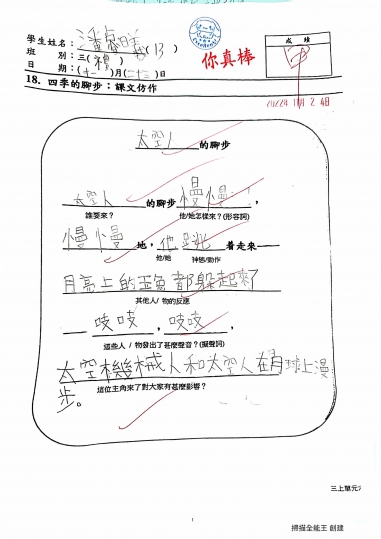 學生姓名：潘(13)
班　別：三(禮)
日　期：(十一)月(二十三)日
成績
你真棒
18. 四季的腳步：課文仿作
2022年11月24日
太空人的腳步
太空人的腳步慢慢，
誰要來？　他/她怎樣來？(形容詞)
慢慢地，他跳着走來——
他/她　神態/動作
月亮上的玉兔都躲起來了
其他人/ 物的反應
——吱吱，吱吱，
這些人 / 物發出了甚麼聲音？(擬聲詞)
太空機械人和太空人在月球上漫
步。
這位主角來了對大家有甚麼影響？
三上單元
1
掃描全能王 創建